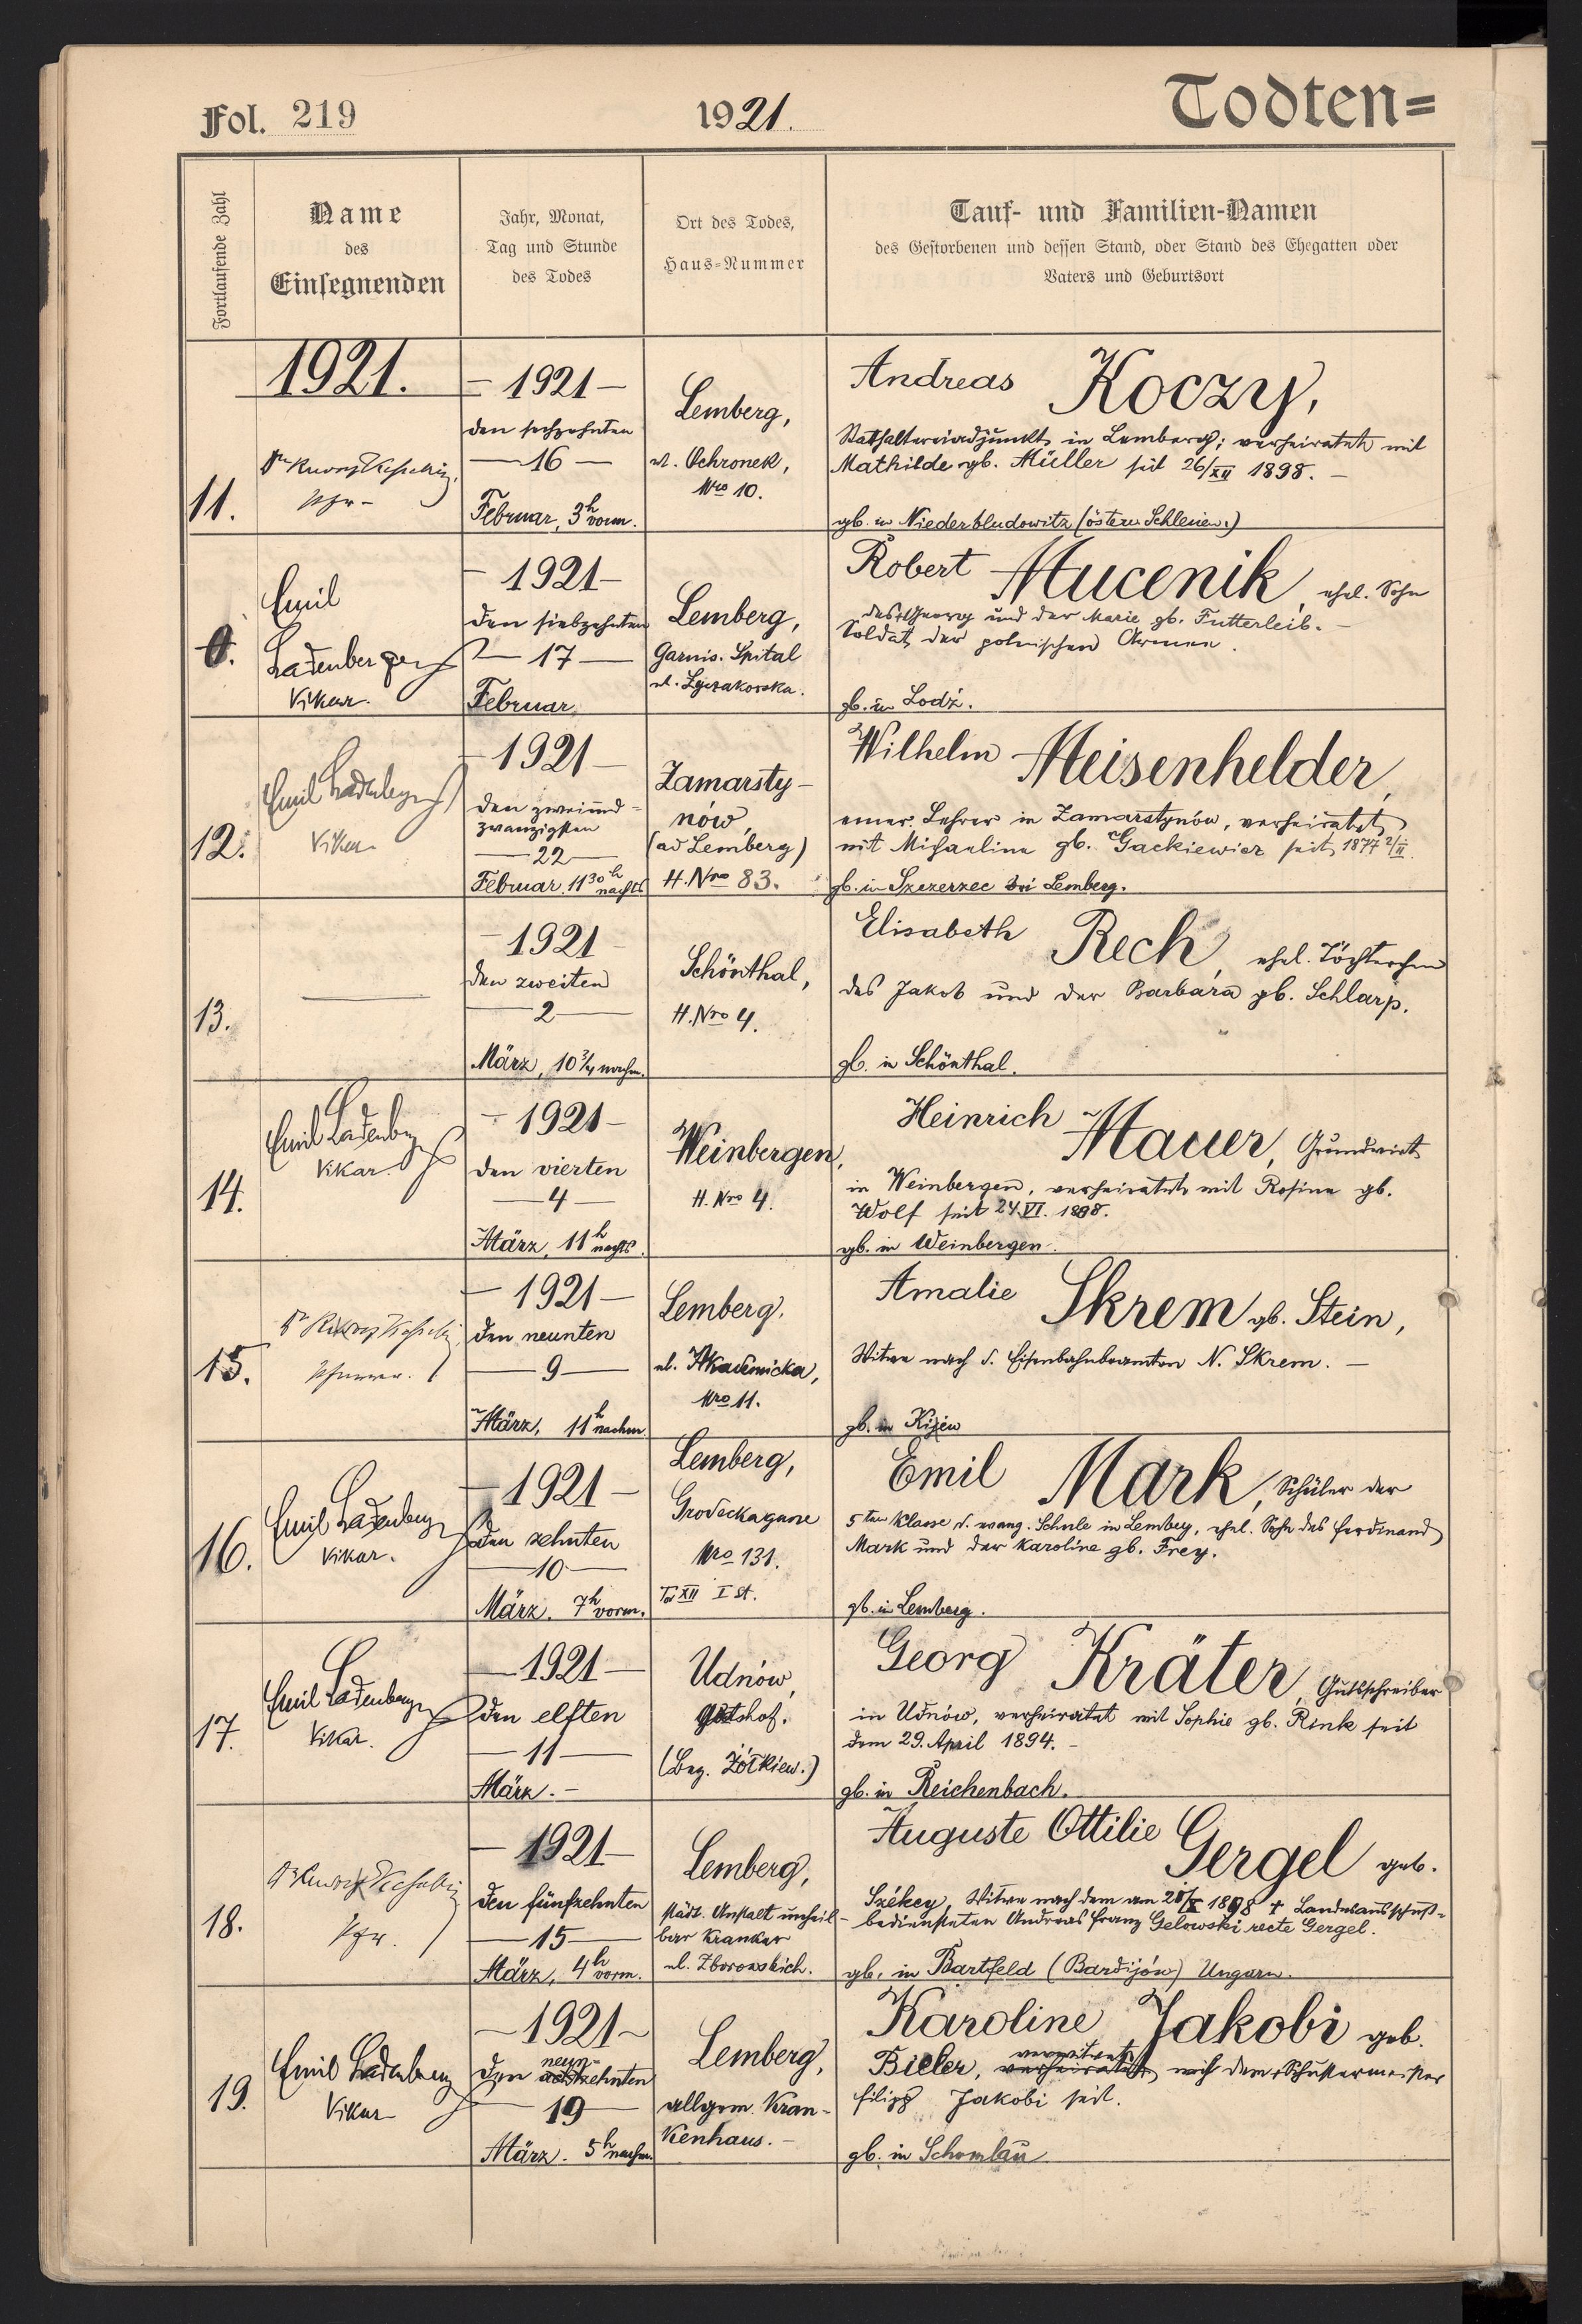 Fol. 219
1921.
Todten=
Fortlaufende Zahl
Name
des
Einsegnenden
Jahr, Monat,
Tag und Stunde
des Todes
Ort des Todes,
Haus-Nummer
Tauf- und Familien-Namen
des Gestorbenen und dessen Stand, oder Stand des Ehegatten oder
Vaters und Geburtsort
1921.
11.
Pfr-
– 1921 –
den sechzehnten
— 16 —
Februar, 3h vorm.
Lemberg,
ul. Ochronek,
Nro 10.
Andreas Koczy,
Statthaltereiadjunkt in Lemberg; verheiratet mit
Mathilde gb. Müller seit 26/XII 1898. –
gb. in Niederbludowitz (österr. Schlesien.)
0.
Emil
Ladenberger
Vikar.
– 1921 –
den siebzehnten
— 17 —
Februar
Lemberg,
Garnis. Spital
ul. Łyczakowska.
Robert Mucenik, ehel. Sohn
des Georg und der Marie gb. Futterleib. –
Soldat der polnischen Armee.
gb. in Lodź.
12.
Emil Ladenberger
Vikar
– 1921 –
den zweiund-
zwanzigsten
— 22 —
Februar. 11 30 h nachts
Zamarsty-
nów,
(ad Lemberg)
H. Nro 83.
Wilhelm Meisenhelder,
emer. Lehrer in Zamarstynów, verheiratet
mit Michaeline gb. Gackiewicz seit 1877 2/II
gb. in Szczerzec bei Lemberg.
13.
– 1921 –
den zweiten
— 2 —
März, 10 3/4 nachm.
Schönthal,
H. Nro 4.
Elisabeth Rech, ehel. Töchterchen
des Jakob und der Barbara gb. Schlarp.
gb. in Schönthal.
14.
Emil Ladenberger
Vikar.
– 1921 –
den vierten
— 4 —
März, 11h nachts.
Weinbergen,
H. Nro 4.
Heinrich Mauer, Grundwirt
in Weinbergen, verheiratet mit Rosine gb.
Wolf seit 24. VI. 1898.
gb. in Weinbergen.
15.
Pfarrer.
– 1921 –
den neunten
— 9 —
März, 11h nachm.
Lemberg.
ul. Akademicka,
Nro 11.
Amalie Skrem gb. Stein,
Witwe nach d. Eisenbahnbeamten N. Skrem. –
gb. in Kijew
16.
Emil Ladenberger
Vikar.
– 1921 –
den zehnten
— 10 —
März. 7h vorm.
Lemberg,
Grodeckagasse
Nro 131.
Tor XII I St.
Emil Mark, Schüler der
5ten Klasse d. evang. Schule in Lemberg, ehel. Sohn des Ferdinand
Mark und der Karoline gb. Frey.
gb. in Lemberg.
17.
Emil Ladenberger
Vikar.
— 1921 —
den elften
— 11 —
März. –
Udnów,
Gutshof.
(Bez. Żółkiew.)
Georg Kräter, Gutsschreiber
in Udnów, verheiratet mit Sophie gb. Rink seit
dem 29. April 1894. –
gb. in Reichenbach.
18.
Pfr.
– 1921 –
den fünfzehnten
— 15 —
März, 4h vorm.
Lemberg,
städt. Anstalt unheil-
barer Kranker
ul. Zborowskich.
Auguste Ottilie Gergel geb.
Székey, Witwe nach dem am 1898 † Landesausschuß-
bediensteten Andreas Franz Gelowski recte Gergel.
gb. in Bartfeld (Bardijów) Ungarn.
19.
Emil Ladenberger
Vikar
– 1921 –
neun-
den achtzehnten
— 19 —
März. 5h nachm.
Lemberg,
allgem. Kran-
kenhaus. –
Karoline Jakobi geb.
verwitwet
Bieler, verheiratet nach dem Schustermeister
Filipp Jakobi seit.
gb. in Schomlau